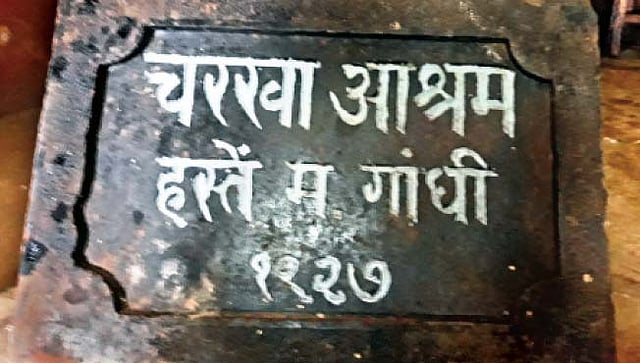 चरखा आश्रम
हस्तें म गांधी
१९२७